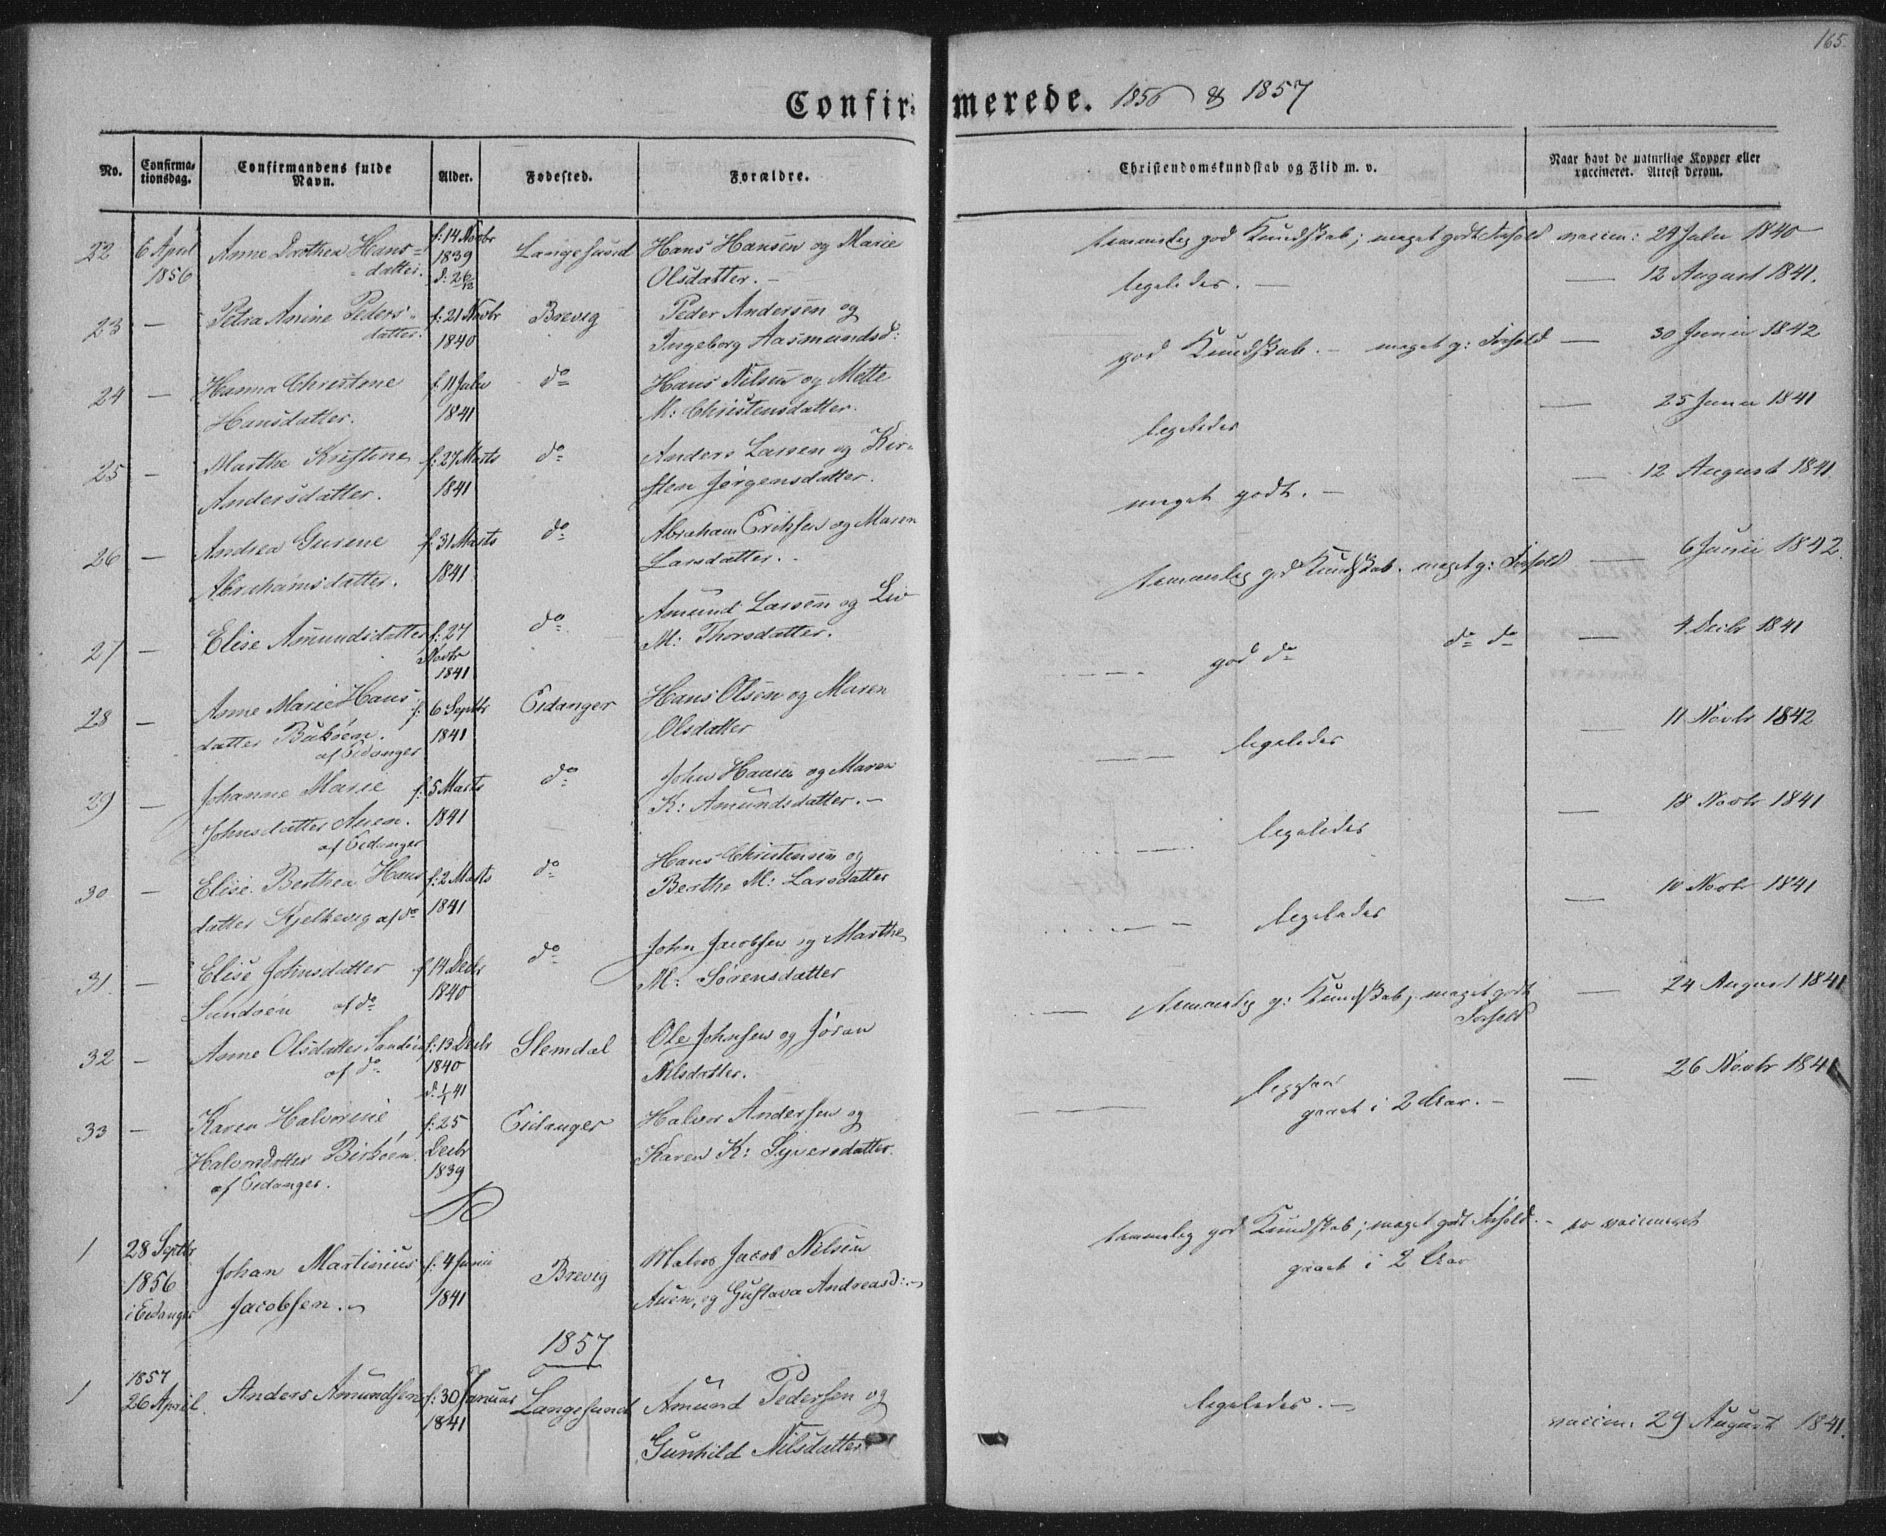 165.
Confirmerede. 1856 & 1857
No.
Confirma-
tionsdag.
Confirmandens fulde
Navn.
Alder.
Fødested.
Forældre.
Christendomskundskab og Flid m. v.
Naar havt de naturlige Kopper eller
vaccineret. Attest derom.
22 6 April Anne Dorthea Hans= f: 14 Novbr Langesund Hans Hansen og Marie temmelig god Kundskab; meget godt Forhold vaccin: 24 Julii 1840
1856 datter. 1839 Olsdatter. –
d: 26/12
23 — Petra Anine Peders- f: 21 Novbr Brevig Peder Andersen og ligeledes. — — 12 August 1841.
datter. 1840 Ingeborg Aasmundsd:
24 — Hanna Christine f: 11 Julii do Hans Nilsen og Mette god Kundskab. – meget g: Forhold — 30 Junii 1842
Hansdatter. 1841 M: Christensdatter.
25 — Marthe Kristine f: 27 Marts do Anders Larsen og Kir- ligeledes — 25 Junii 1841
Andersdatter. 1841 sten Jørgensdatter.
26 — Andrea Gurene f: 31 Marts do Abraham Eriksen og Maren meget godt. – — 12 August 1841.
Abrahamsdatter. 1841 Larsdatter. –
27 — Elise Amundsdatter f: 27 do Amund Larsen og Liv temmelig god Kundskab. meget g: Forhold — 6 Junii 1842.
Novbr M: Thorsdatter.
1841
28 — Anne Marie Hans- f: 6 Septbr Eidanger Hans Olsen og Maren god do do do — 4 Decbr 1841
datter Bukøen. 1841 Olsdatter
af Eidanger
29 — Johanne Marie f: 5 Marts do John Hansen og Maren ligeledes — 11 Novbr 1842
Johnsdatter Auen. 1841 K: Amundsdatter. –
af Eidanger
30 — Elise Berthea Hans f: 2 Marts do Hans Christensen og ligeledes — 18 Novbr 1841
datter Kjelkevig af do 1841 Berthe M: Larsdatter
31. — Elise Johnsdatter f: 14 Decbr do John Jacobsen og Marthe ligeledes — 10 Novbr 1841
Sandøen af do 1840 M: Sørensdatter
32 — Anne Olsdatter Sandøen f: 13 Decbr Slemdal Ole Johnsen og Jøran temmelig g: Kundskab, meget godt — 24 August 1841
af do 1840 Nilsdatter. Forhold
d: 1/1 41
33 — Karen Halvorine f: 25 Eidanger Halvor Andersen og — 26 Novbr 1841
Halvorsdatter Birkøen. Decbr Karen K: Syversdatter. gaaet i 2 Aar. –
af Eidanger. 1839
1 28 Septbr Johan Martinius f: 4 Junii Brevig Matros Jacob Nilsen temmelig god Kundskab; meget godt Forhold. – er vaccineret
1856 Jacobsen. 1841 Auen, og Gustava Andreasd: gaaet i 2 Aar
i Eidanger
1857
1 1857 Anders Amundsen f: 30 Januar Langesund Amund Pedersen og ligeledes. — vaccin. 29 August 1841.
26 April. 1841 Gunhild Nilsdatter